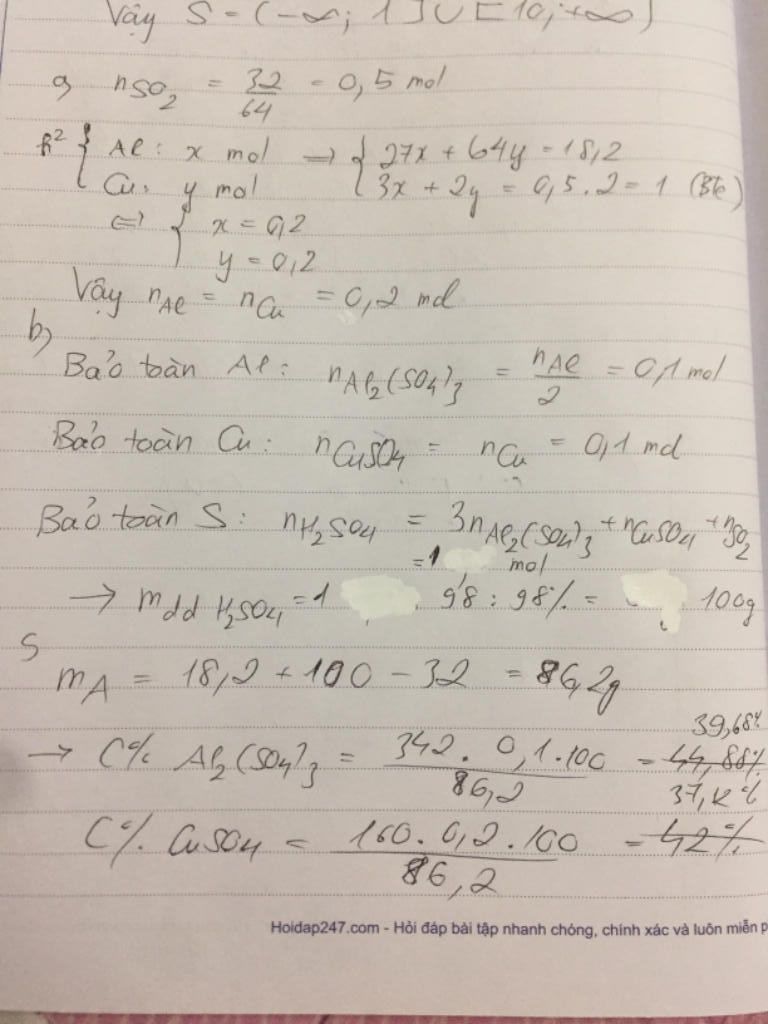 Vậy S = (-∞; 1] ∪ [10; +∞)
a) nSO₂ = 32/64 = 0,5 mol
h² { Al: x mol ⇒ { 27x + 64y = 18,2
Cu: y mol 3x + 2y = 0,5 . 2 = 1 (Bte)
⇔ { x = 0,2
y = 0,2
Vậy nAl = nCu = 0,2 mol
b)
Bảo toàn Al: nAl₂(SO₄)₃ = nAl/2 = 0,1 mol
Bảo toàn Cu: nCuSO₄ = nCu = 0,1 mol
Bảo toàn S: nH₂SO₄ = 3nAl₂(SO₄)₃ + nCuSO₄ + nSO₂
=1 mol
→ mdd H₂SO₄ = 1 98 : 98% = 100g
S
mA = 18,2 + 100 - 32 = 86,2g
39,68%
→ C% Al₂(SO₄)₃ = 342 . 0,1 . 100/86,2 = 44,88%
37,12%
C% CuSO₄ = 160 . 0,2 . 100/86,2 = 42%
Hoidap247.com - Hỏi đáp bài tập nhanh chóng, chính xác và luôn miễn p